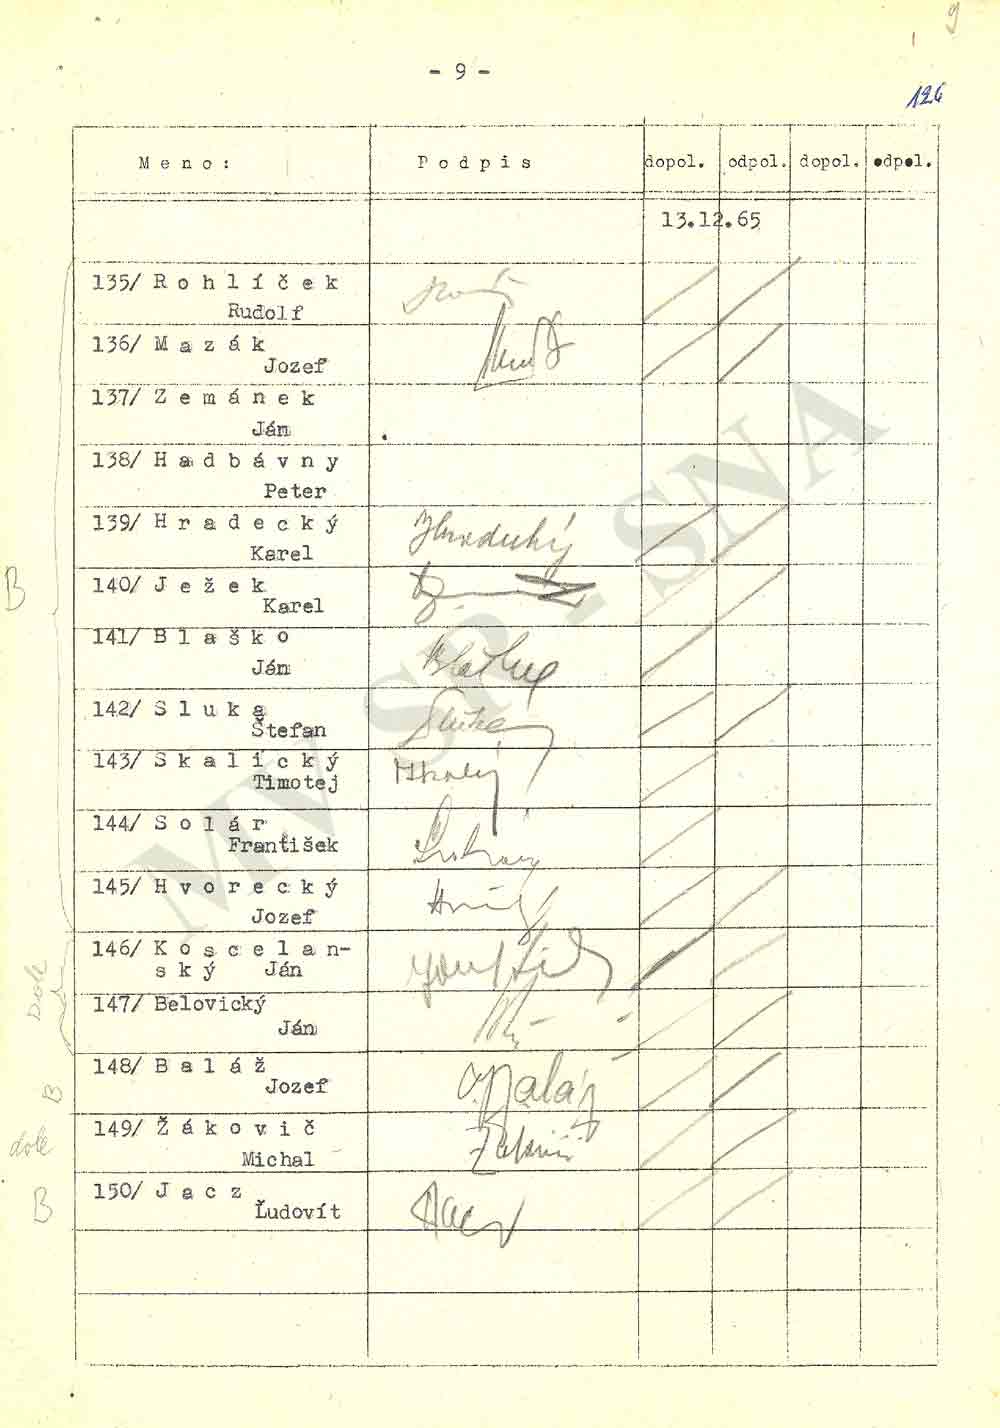 9
- 9 -
126
Meno: Podpis dopol. odpol. dopol. odpol.
13.12.65
135/ Rohlíček
Rudolf
136/ Mazák
Jozef
137/ Zemánek
Ján
138/ Hadbávny
Peter
139/ Hradecký
Karel
B
140/ Ježek
Karel
141/ Blaško
Ján
142/ Sluka
Štefan
143/ Skalický
Timotej
144/ Solár
František
145/ Hvorecký
Jozef
146/ Koscelan-
ský Ján
Dole
147/ Belovický
Ján
148/ Baláž
Jozef
B
149/ Žákovič
Michal
dole
150/ Jacz
Ľudovít
B
MV SR - SNA